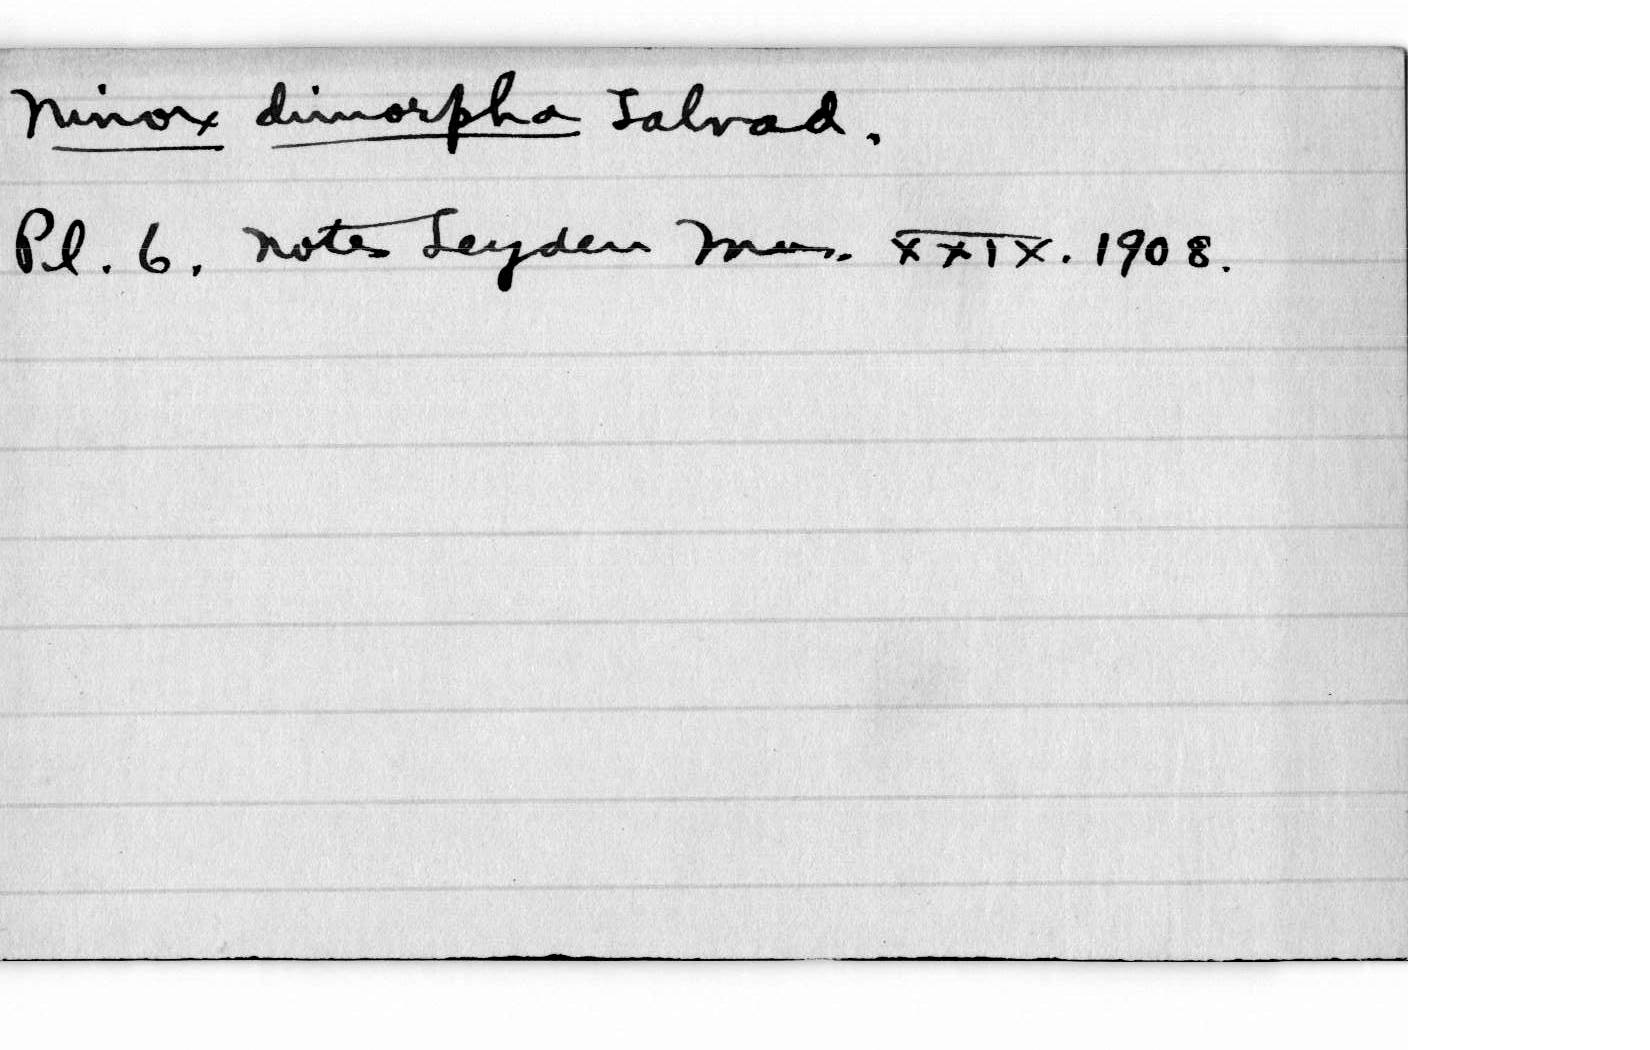 Ninox dimorpha Salvad.
Pl. 6. Notes Leyden Mus. XXIX. 1908.